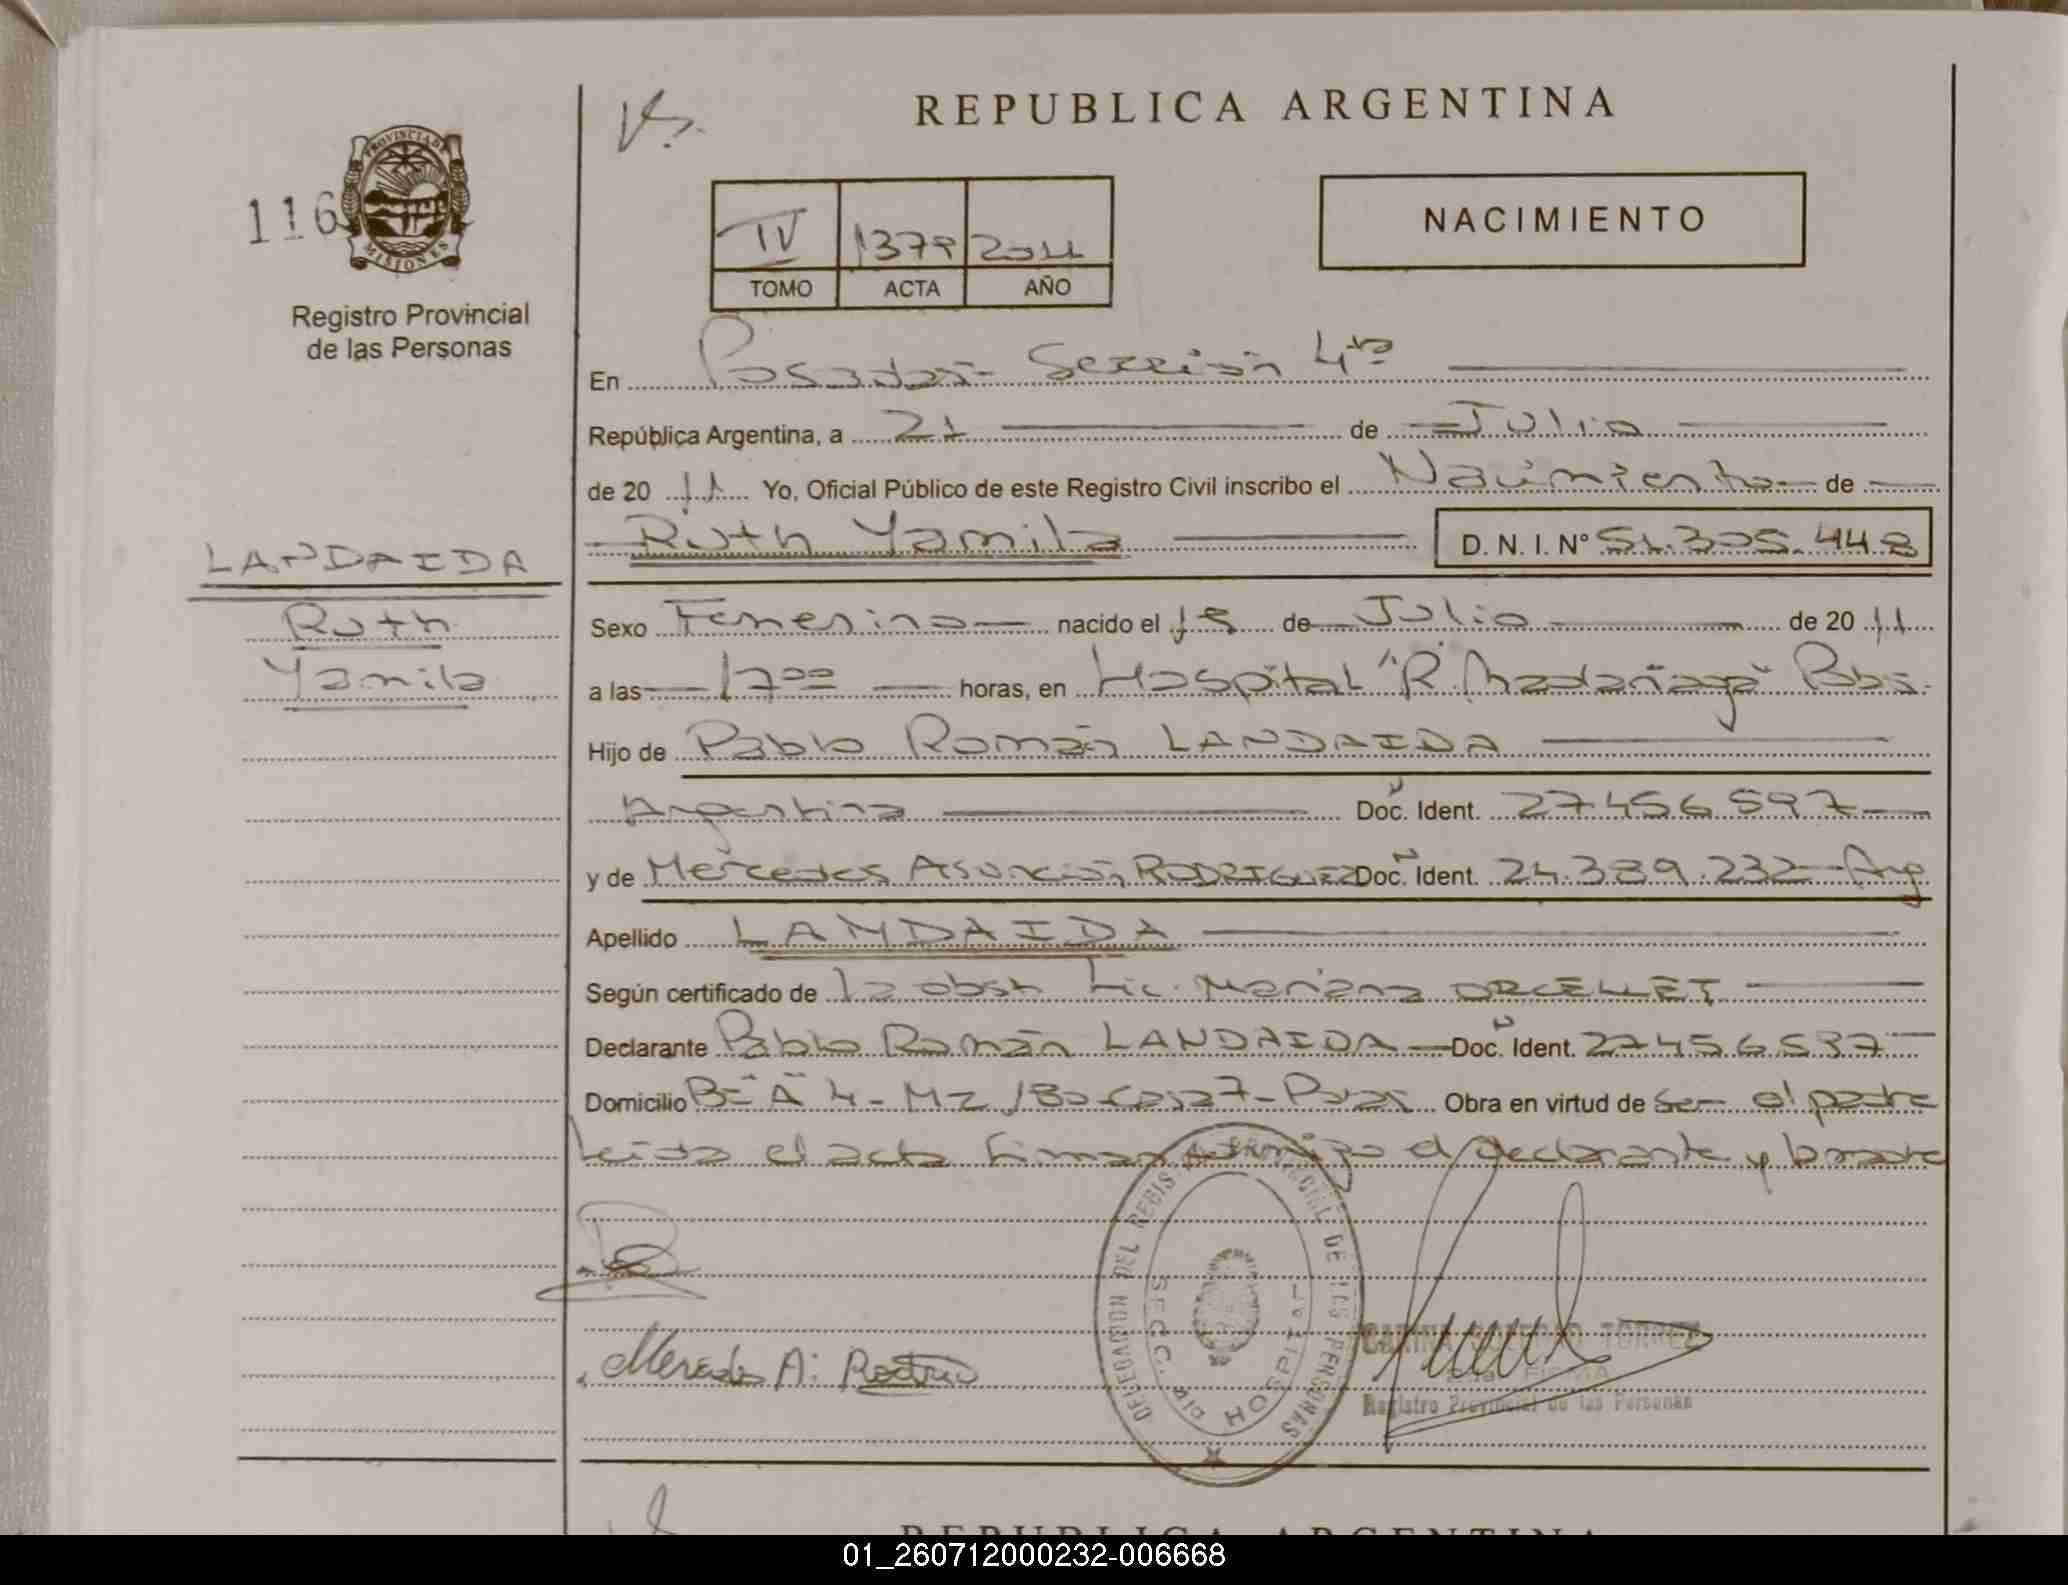 REPUBLICA ARGENTINA
116
PROVINCIA DE MISIONES
Registro Provincial
de las Personas
IV 1379 2011
TOMO ACTA AÑO
NACIMIENTO
En Posadas - Sección 4ta
República Argentina, a 21 de Julio
de 20 11 Yo, Oficial Público de este Registro Civil inscribo el Nacimiento de
Ruth Yamila D. N. I. N° 51.305.448
LANDAIDA
Ruth
Yamila
Sexo Femenino nacido el 15 de Julio de 20 11
a las 17 00 horas, en Hospital "R. Madariaga" Pdas.
Hijo de Pablo Román LANDAIDA
Argentina Doc. Ident. 27.456.597
y de Mercedes Asunción RODRIGUEZ Doc. Ident. 24.389.232 - Arg
Apellido LANDAIDA
Según certificado de la obst. Lic. Mariana ORCELLET
Declarante Pablo Román LANDAIDA Doc. Ident. 27.456.597
Domicilio Bº "A" 4 - Mz 180 - Casa 7 - Pdas. Obra en virtud de ser el padre
Leida el acta firman conmigo el declarante y la madre
DELEGACION DEL REGISTRO PROVINCIAL DE LAS PERSONAS
SECC. 4ta HOSPITAL
Mercedes A. Rodrig
TORREZ
FIRMA
Registro Provincial de las Personas
REPUBLICA ARGENTINA
01_260712000232-006668